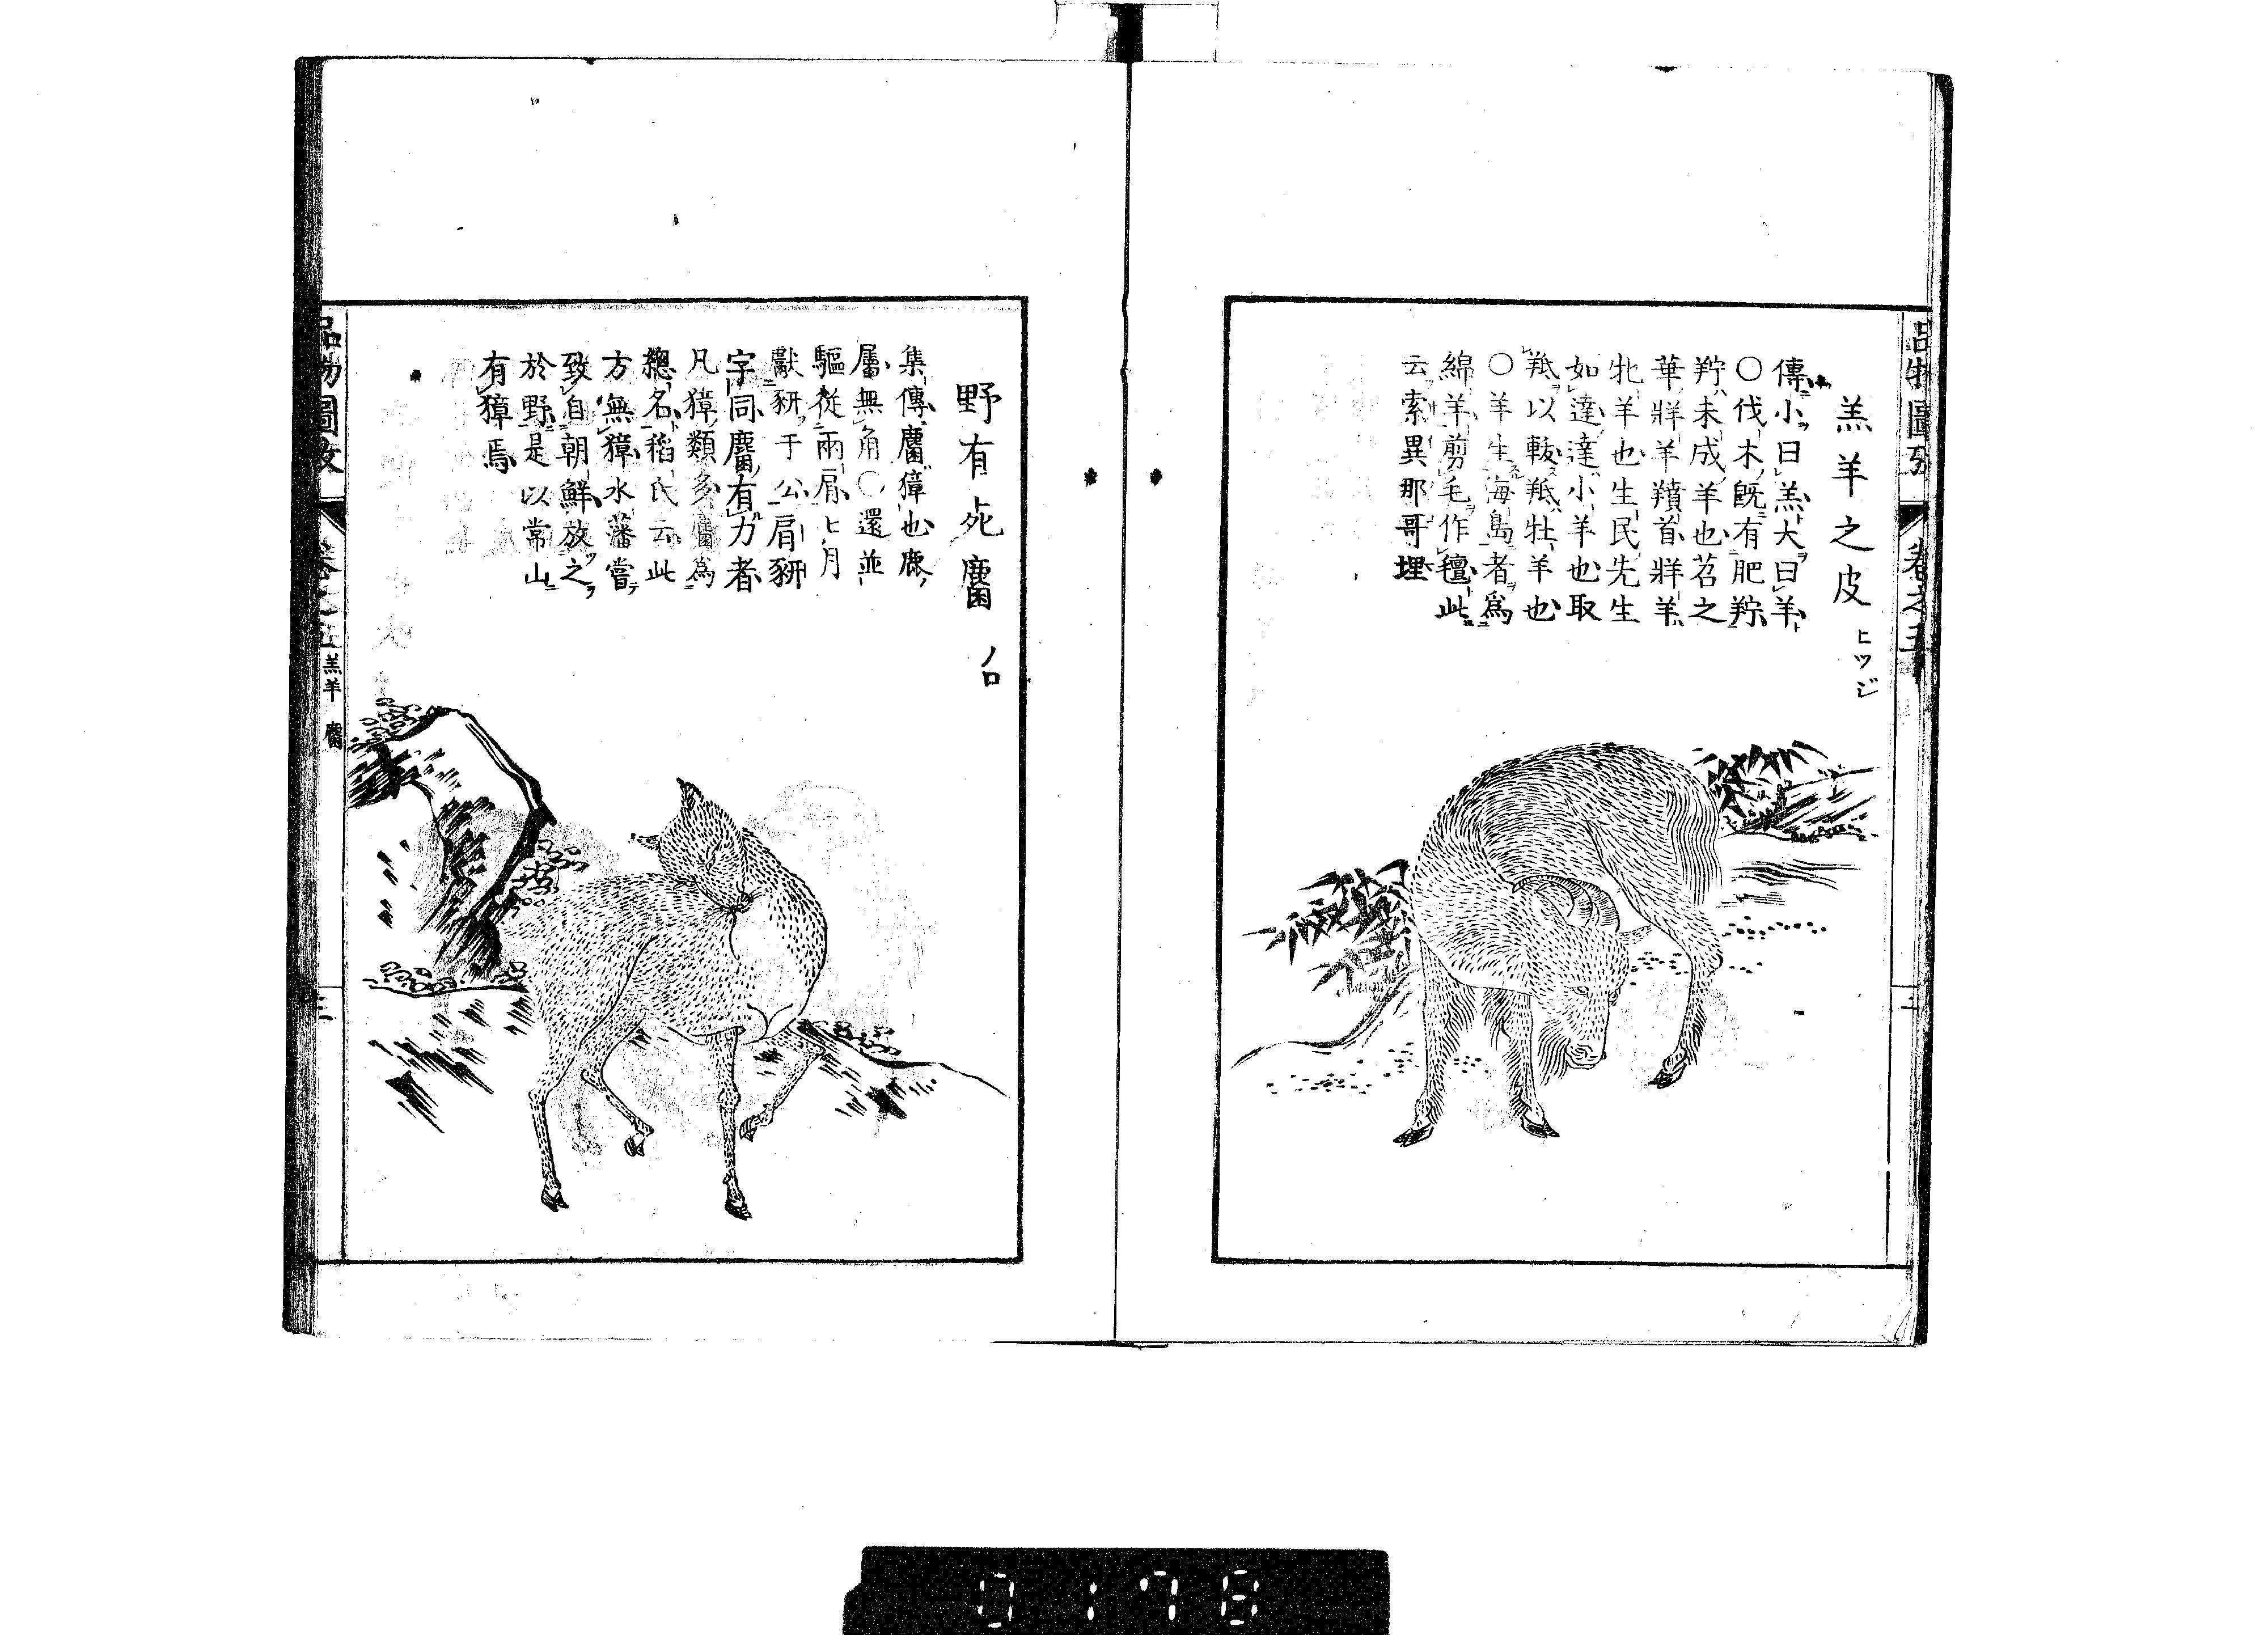 羔羊之皮 ヒツジ
傳小曰羔大曰羊
〇伐木既有肥羜
羜未成羊也苕之
華牂羊羵首牂羊
牝羊也生民先生
如達達小羊也取
羝以軷羝牡羊也
〇羊生海島者爲
綿羊剪毛作氊此
云索異那哥埋
卷之五
野有死麕 ノロ
集傳麕獐也鹿
屬無角〇還並
驅從兩肩七月
獻豜于公肩豜
字同麕有力者
凡獐類多麕爲
總名稻氏云此
方無獐水藩嘗
致自朝鮮放之
於野是以常山
有獐焉
品物圖攷
卷之五
羔羊 麕
0178